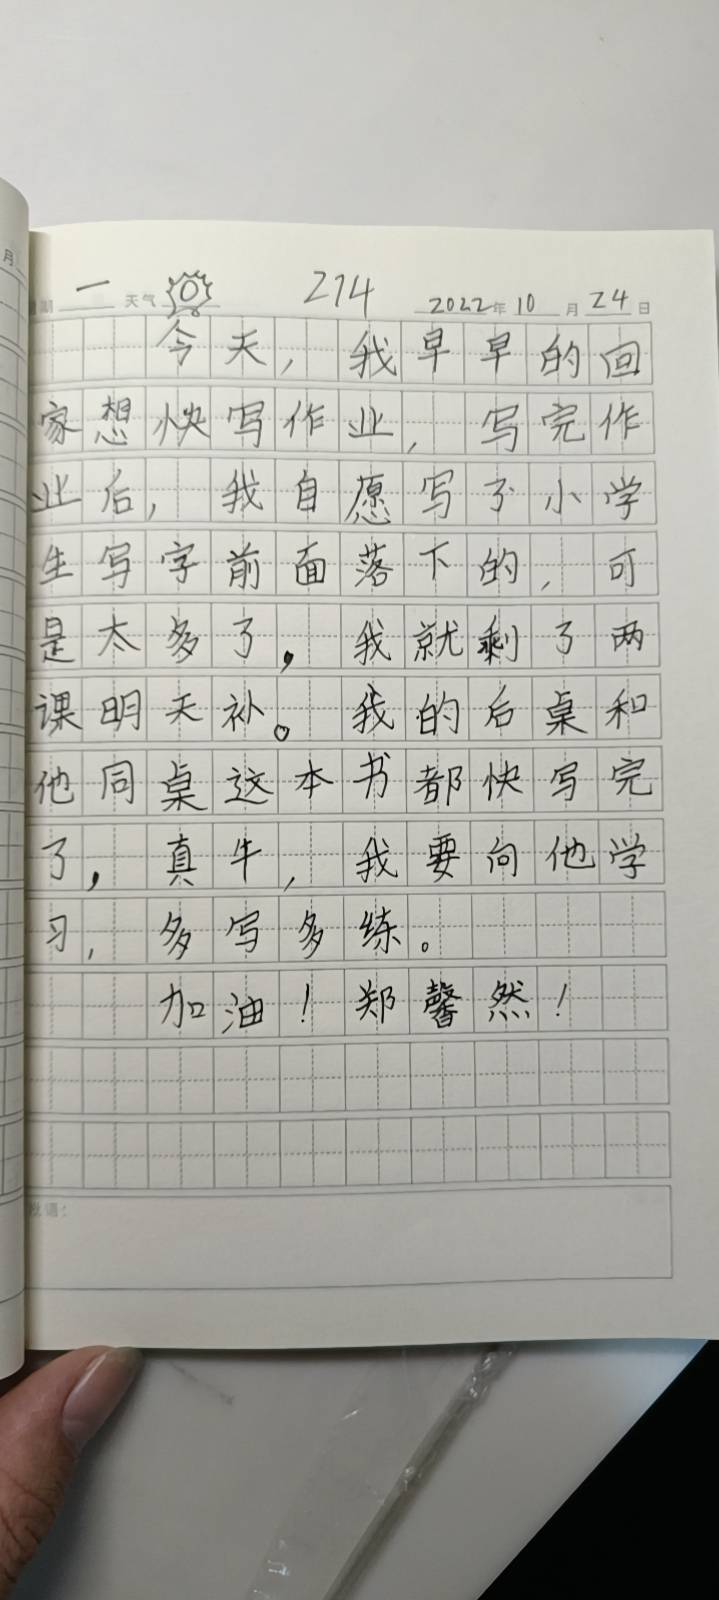 月
星期 一 天气 274 2022年10月24日
今天，我早早的回
家想快写作业，写完作
业后，我自愿写了小学
生写字前面落下的，可
是太多了，我就剩了两
课明天补。我的后桌和
他同桌这本书都快写完
了，真牛，我要向他学
习，多写多练。
加油！郑馨然！
批语：